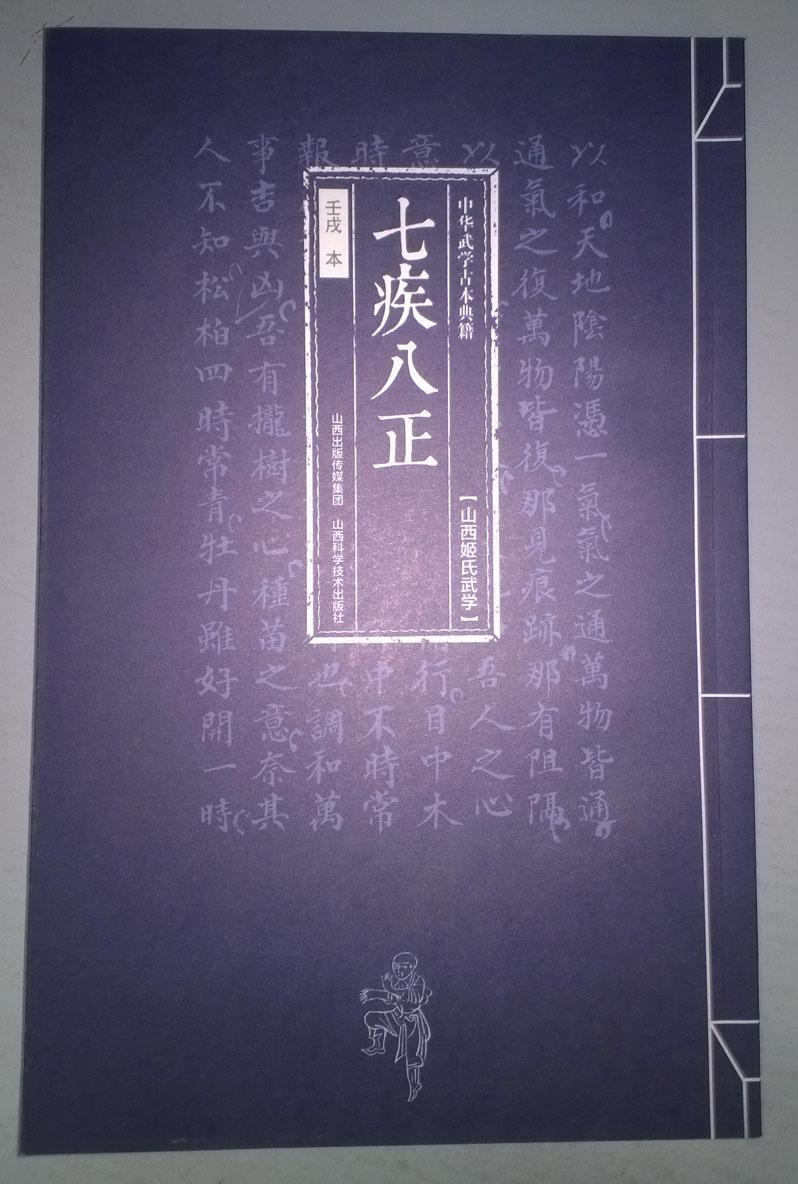 中华武学古本典籍
【山西姬氏武学】
七疾八正
壬戌 本
山西出版传媒集团 山西科学技术出版社
以和天地陰陽憑一氣氣之通萬物皆通
通氣之復萬物皆復那見痕跡那有阻隔
以
吾人之心
意
行目中木
時
申不時常
報
也調和萬
事吉與凶吾有攏樹之心種苗之意奈其
人不知松柏四時常青牡丹雖好開一時